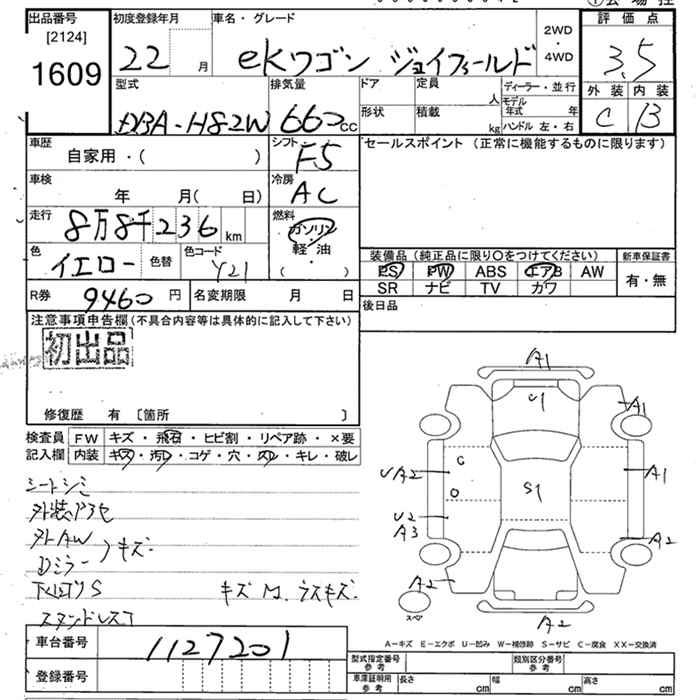 出品番号 [2124] 1609
初度登録年月 22 月
車名・グレード ekワゴン ジョイフィールド
2WD・4WD
評価点 3.5
外装 内装
C B
型式 DBA-H82W
排気量 660cc
ドア 形状
定員 人
積載 kg
ディーラー・並行
モデル年式 年
ハンドル 左・右
車歴 自家用・( )
シフト F5
セールスポイント (正常に機能するものに限ります)
車検 年 月( 日)
冷房 AC
走行 8万8千236 km
燃料 ガソリン 軽・油 ( )
色 イエロー 色替
色コード Y21
装備品 (純正品に限り○をつけてください)
新車保証書
PS PW ABS エアB AW
有・無
SR ナビ TV カワ
R券 9460 円
名変期限 月 日
後日品
注意事項申告欄 (不具合内容等は具体的に記入して下さい)
初出品
修復歴 有 〔箇所 〕
検査員 FW キズ・飛石・ヒビ割・リペア跡・×要
記入欄 内装 キズ・汚レ・コゲ・穴・スレ・キレ・破レ
シートシミ
外装
外AW
Dミラー キズ
キズ
A1
U1
A1
C
UA2
S1
A1
U2
A3
A2
A2
スペア
A2
A-キズ E-エクボ U-凹み W-補修跡 S-サビ C-腐食 XX-交換済
車台番号 1127201
登録番号
型式指定番号 参考
類別区分番号 参考
車庫証明用 参考 長さ cm 幅 cm 高さ cm